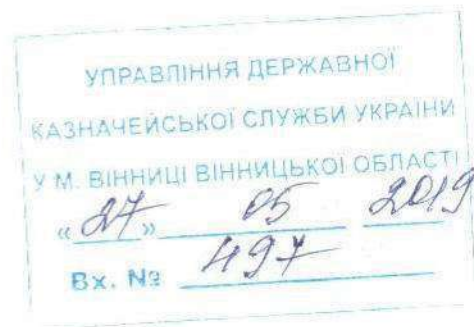 УПРАВЛІННЯ ДЕРЖАВНОЇ
КАЗНАЧЕЙСЬКОЇ СЛУЖБИ УКРАЇНИ
У М. ВІННИЦІ ВІННИЦЬКОЇ ОБЛАСТІ
«27» 05 2019
Вх. № 497